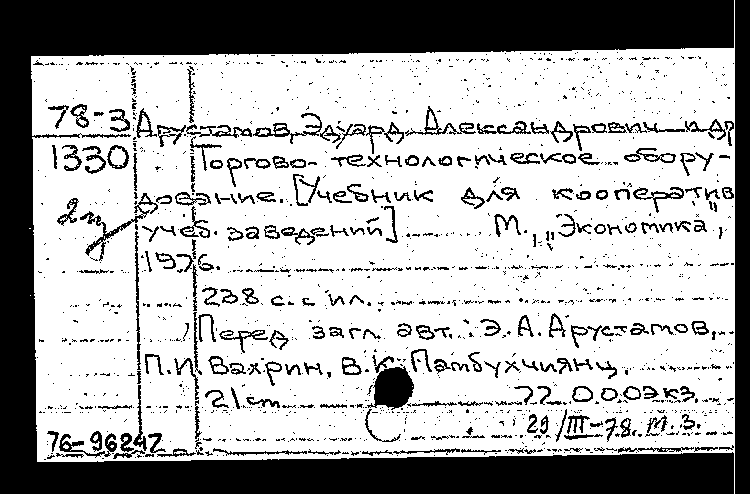 78-3 Арустамов, Эдуард Александрович и др
1330 Торгово-технологическое обору-
дование. [Учебник для кооператив
2 учеб. заведений] М., „Экономика",
1976.
238 с. с ил.
Перед загл. авт.: Э.А.Арустамов,
П.И.Вахрин, В.К.Памбухчиянц.
21 cm 22 000 экз.
29/III-78. М.З.
76-96247